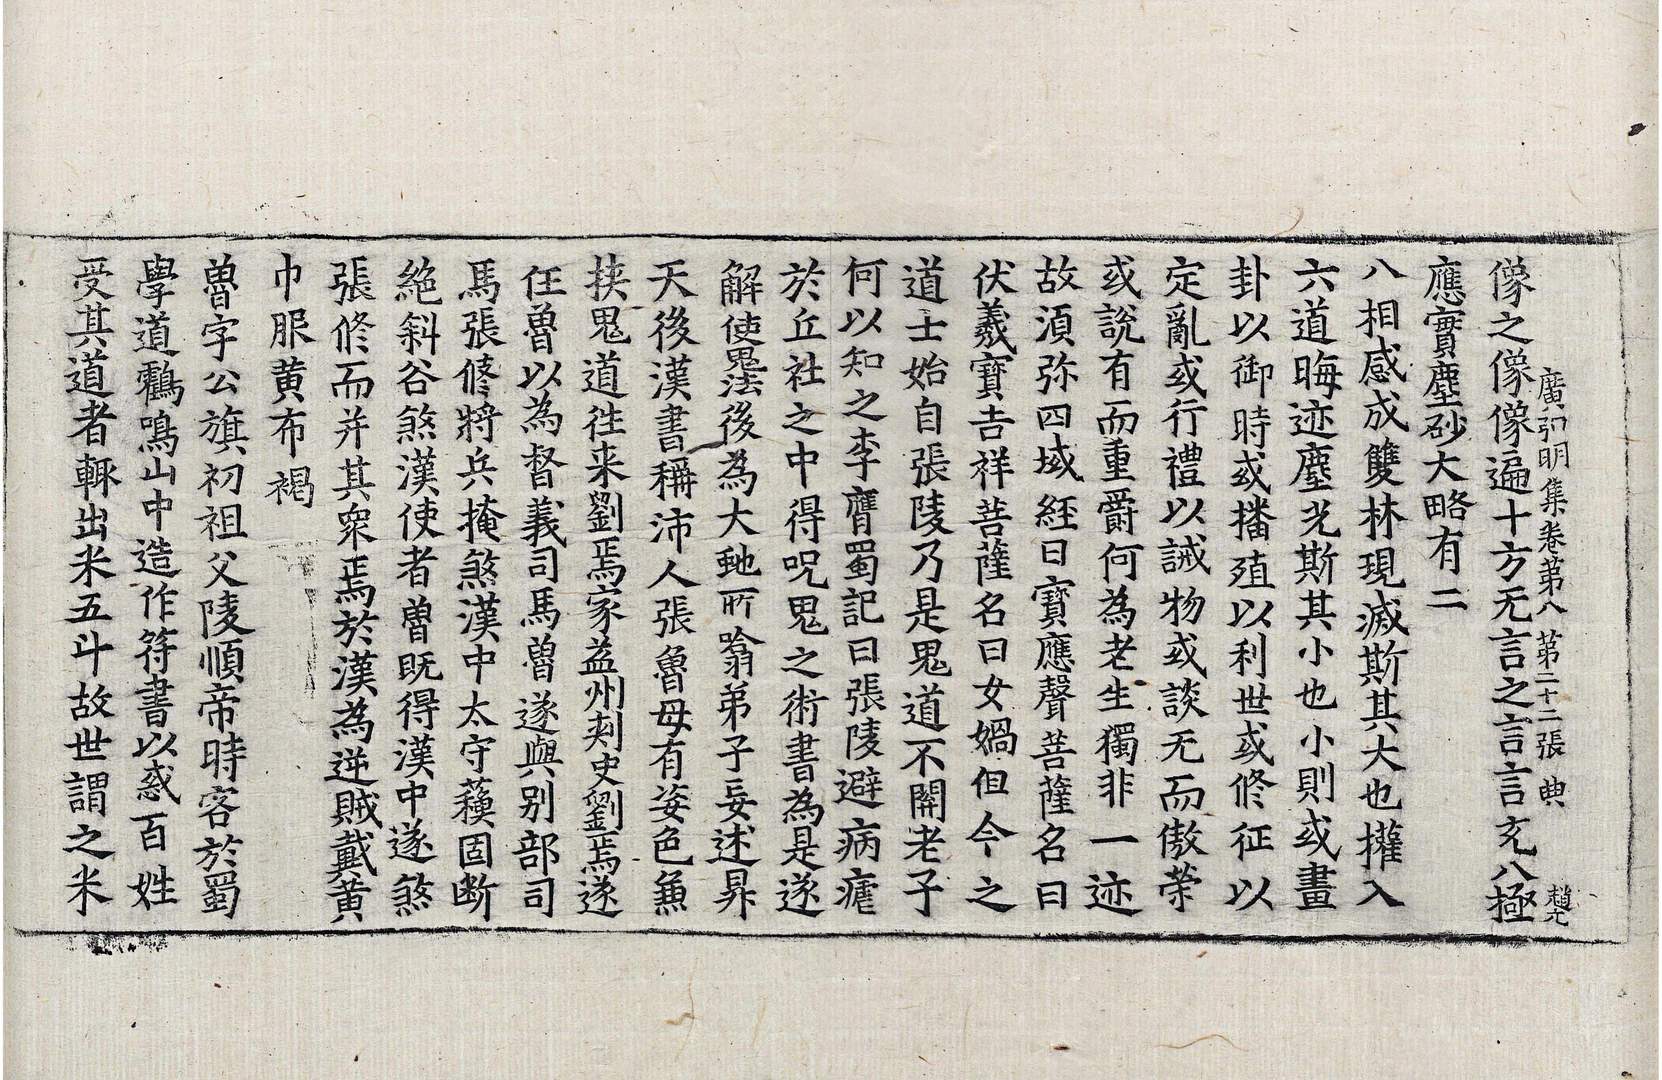 廣弘明集卷第八 第二十二張 典 趙尤
像之像像遍十方无言之言言充八極
應實塵砂大略有二
八相感成雙林現滅斯其大也權入
六道晦迹塵光斯其小也小則或畫
卦以御時或播殖以利世或修征以
定亂或行禮以誡物或談无而傲榮
或說有而重爵何為老生獨非一迹
故須弥四域經曰寶應聲菩薩名曰
伏羲寶吉祥菩薩名曰女媧但今之
道士始自張陵乃是鬼道不關老子
何以知之李膺蜀記曰張陵避病瘧
於丘社之中得呪鬼之術書為是遂
解使鬼法後為大虵所噏弟子妄述昇
天後漢書稱沛人張魯母有姿色兼
挟鬼道往来劉焉家益州刾史劉焉遂
任魯以為督義司馬魯遂與别部司
馬張修將兵掩煞漢中太守蘓固断
絕斜谷煞漢使者魯既得漢中遂煞
張修而并其衆焉於漢為逆賊戴黄
巾服黄布褐
魯字公旗初祖父陵順帝時客於蜀
學道鸖鳴山中造作符書以惑百姓
受其道者輙出米五斗故世謂之米